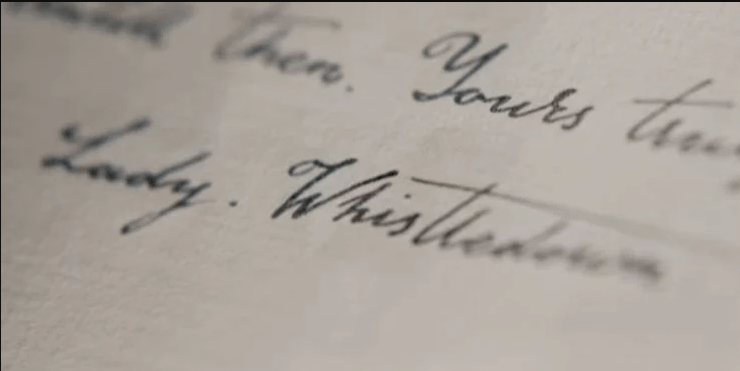 then. Yours truly
Lady. Whistledown